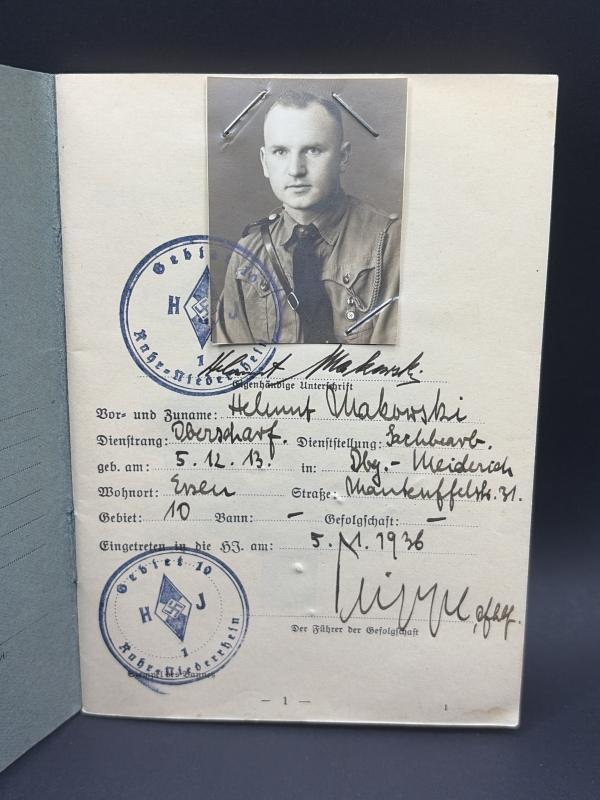 Gebiet 10
H J
1
Ruhr-Niederrhein
Helmut Makowski
Eigenhändige Unterschrift
Vor- und Zuname: Helmut Makowski
Dienstrang: Oberscharf. Dienststellung: Sachbearb.
geb. am: 5. 12. 13. in: Dbg.-Meiderich
Wohnort: Essen Straße: Manteuffelstr. 31.
Gebiet: 10 Bann: – Gefolgschaft: –
Eingetreten in die HJ. am: 5. 1. 1936
Gebiet 10
H J
1
Ruhr-Niederrhein
Der Führer der Gefolgschaft
Stempel des Bannes
– 1 –
1